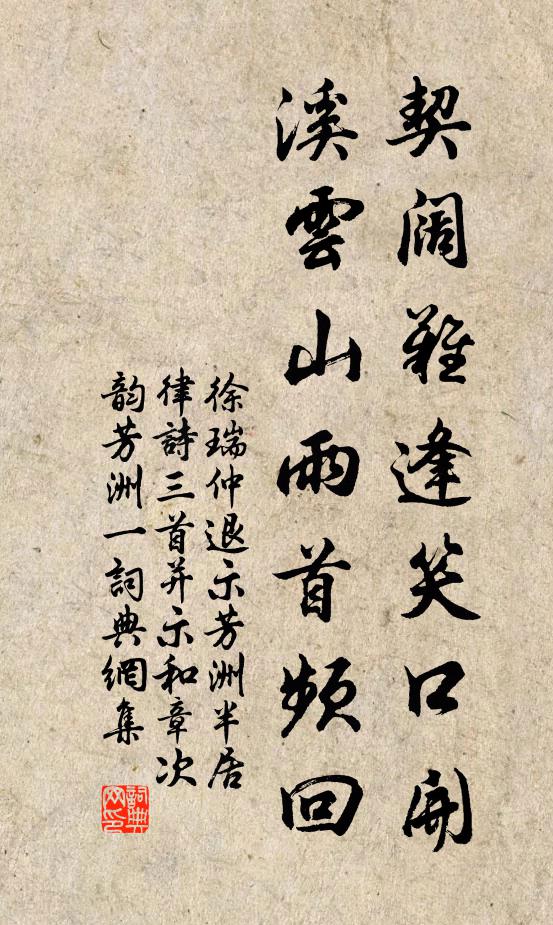 契阔難逢笑口開
溪雲山雨首頻回
徐瑞仲退示芳洲半居
律詩三首并示和章次
韵芳洲一詞典網集
詞典网印